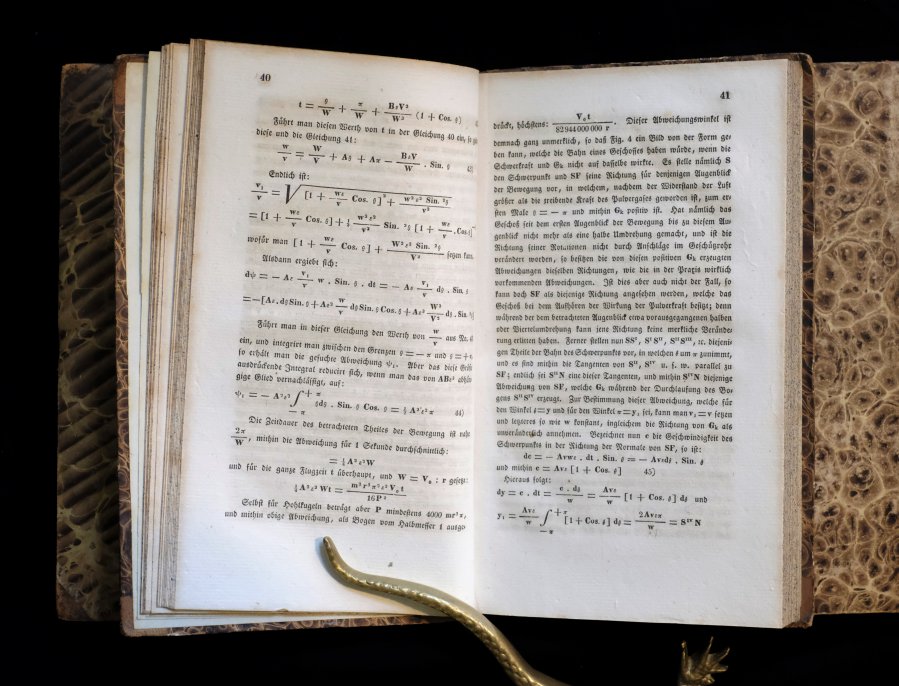 40
t = ϑ/W + π/W + BεV²/W³ (1 + Cos. ϑ)
Führt man diesen Werth von t in der Gleichung 40 ein, so
diese und die Gleichung 41:
w/v = W/V + Aϑ + Aπ − BεV/W . Sin. ϑ
Endlich ist:
v₁/v = √([1 + wε/v Cos. ϑ]² + w²ε² Sin. ²ϑ/v²)
= [1 + wε/v Cos. ϑ] + ½ w²ε²/v² Sin. ²ϑ [1 + wε/v . Cos. ϑ]
wofür man [1 + wε/v Cos. ϑ] + W²ε² Sin. ²ϑ/V² setzen kann.
Alsdann ergiebt sich:
dψ = − Aε v₁/v w . Sin. ϑ . dt = − Aε v₁/v dϑ . Sin. ϑ
= −[Aε . dϑ Sin. ϑ + Aε² w/v dϑ Sin. ϑ Cos. ϑ + Aε³ W²/V² dϑ . Sin.
Führt man in dieser Gleichung den Werth von w/v aus
ein, und integrirt man zwischen den Grenzen ϑ = − π und ϑ = + π
so erhält man die gesuchte Abweichung ψ₁. Aber das diese
ausdrückende Integral reducirt sich, wenn man das von ABε³
gige Glied vernachlässigt, auf:
ψ₁ = − A²ε² ∫ + π − π ϑdϑ . Sin. ϑ Cos. ϑ = ½ A²ε² π 44)
Die Zeitdauer des betrachteten Theiles der Bewegung ist
2π/W, mithin die Abweichung für 1 Sekunde durchschnittlich:
= ¼ A²ε²W
und für die ganze Flugzeit t überhaupt, und W = V₀ : r gesetzt:
¼ A²ε² Wt = m²r³π²ε² V₀t/16P²
Selbst für Hohlkugeln beträgt aber P mindestens 4000 mr²π,
und mithin obige Abweichung, als Bogen vom Halbmesser 1
41
drückt, höchstens: V₀t/82944000000 r. Dieser Abweichungswinkel ist
demnach ganz unmerklich, so daß Fig. 4 ein Bild von der Form ge-
ben kann, welche die Bahn eines Geschosses haben würde, wenn die
Schwerkraft und Gₖ nicht auf dasselbe wirkte. Es stelle nämlich S
den Schwerpunkt und SF seine Richtung für denjenigen Augenblick
der Bewegung vor, in welchem, nachdem der Widerstand der Luft
größer als die treibende Kraft des Pulvergases geworden ist, zum er-
sten Male ϑ = − π und mithin Gₖ positiv ist. Hat nämlich das
Geschoß seit dem ersten Augenblick der Bewegung bis zu diesem Au-
genblick nicht mehr als eine halbe Umdrehung gemacht, und ist die
Richtung seiner Rotationen nicht durch Anschläge im Geschützrohr
verändert worden, so besitzen die von diesen positiven Gₖ erzeugten
Abweichungen dieselben Richtungen, wie die in der Praxis wirklich
vorkommenden Abweichungen. Ist dies aber auch nicht der Fall, so
kann doch SF als diejenige Richtung angesehen werden, welche das
Geschoß bei dem Aufhören der Wirkung der Pulverkraft besitzt; denn
während der dem betrachteten Augenblick etwa vorausgegangenen halben
oder Viertelumdrehung kann jene Richtung keine merkliche Verände-
rung erlitten haben. Ferner stellen nun SSᴵ, SᴵSᴵᴵ, SᴵᴵSᴵᴵᴵ, ꝛc. diejeni-
gen Theile der Bahn des Schwerpunkts vor, in welchen ϑ um π zunimmt,
und es sind mithin die Tangenten von Sᴵᴵ, Sᴵⱽ u. s. w. parallel zu
SF; endlich sei SᴵᴵN eine dieser Tangenten, und mithin SᴵⱽN diejenige
Abweichung von SF, welche Gₖ während der Durchlaufung des Bo-
gens SᴵᴵSᴵⱽ erzeugt. Zur Bestimmung dieser Abweichung, welche für
den Winkel ϑ = y und für den Winkel π = y₁ sei, kann man v₁ = v setzen
und letzteres so wie w konstant, ingleichem die Richtung von Gₖ als
unveränderlich annehmen. Bezeichnet nun c die Geschwindigkeit des
Schwerpunkts in der Richtung der Normale von SF, so ist:
dc = − Avwε . dt . Sin. ϑ = − Avεdϑ . Sin. ϑ
und mithin c = Avε [1 + Cos. ϑ] 45)
Hieraus folgt:
dy = c . dt = c . dϑ/w = Avε/w [1 + Cos. ϑ] dϑ und
y₁ = Avε/w ∫ + π − π [1 + Cos. ϑ] dϑ = 2Avεπ/w = SᴵⱽN